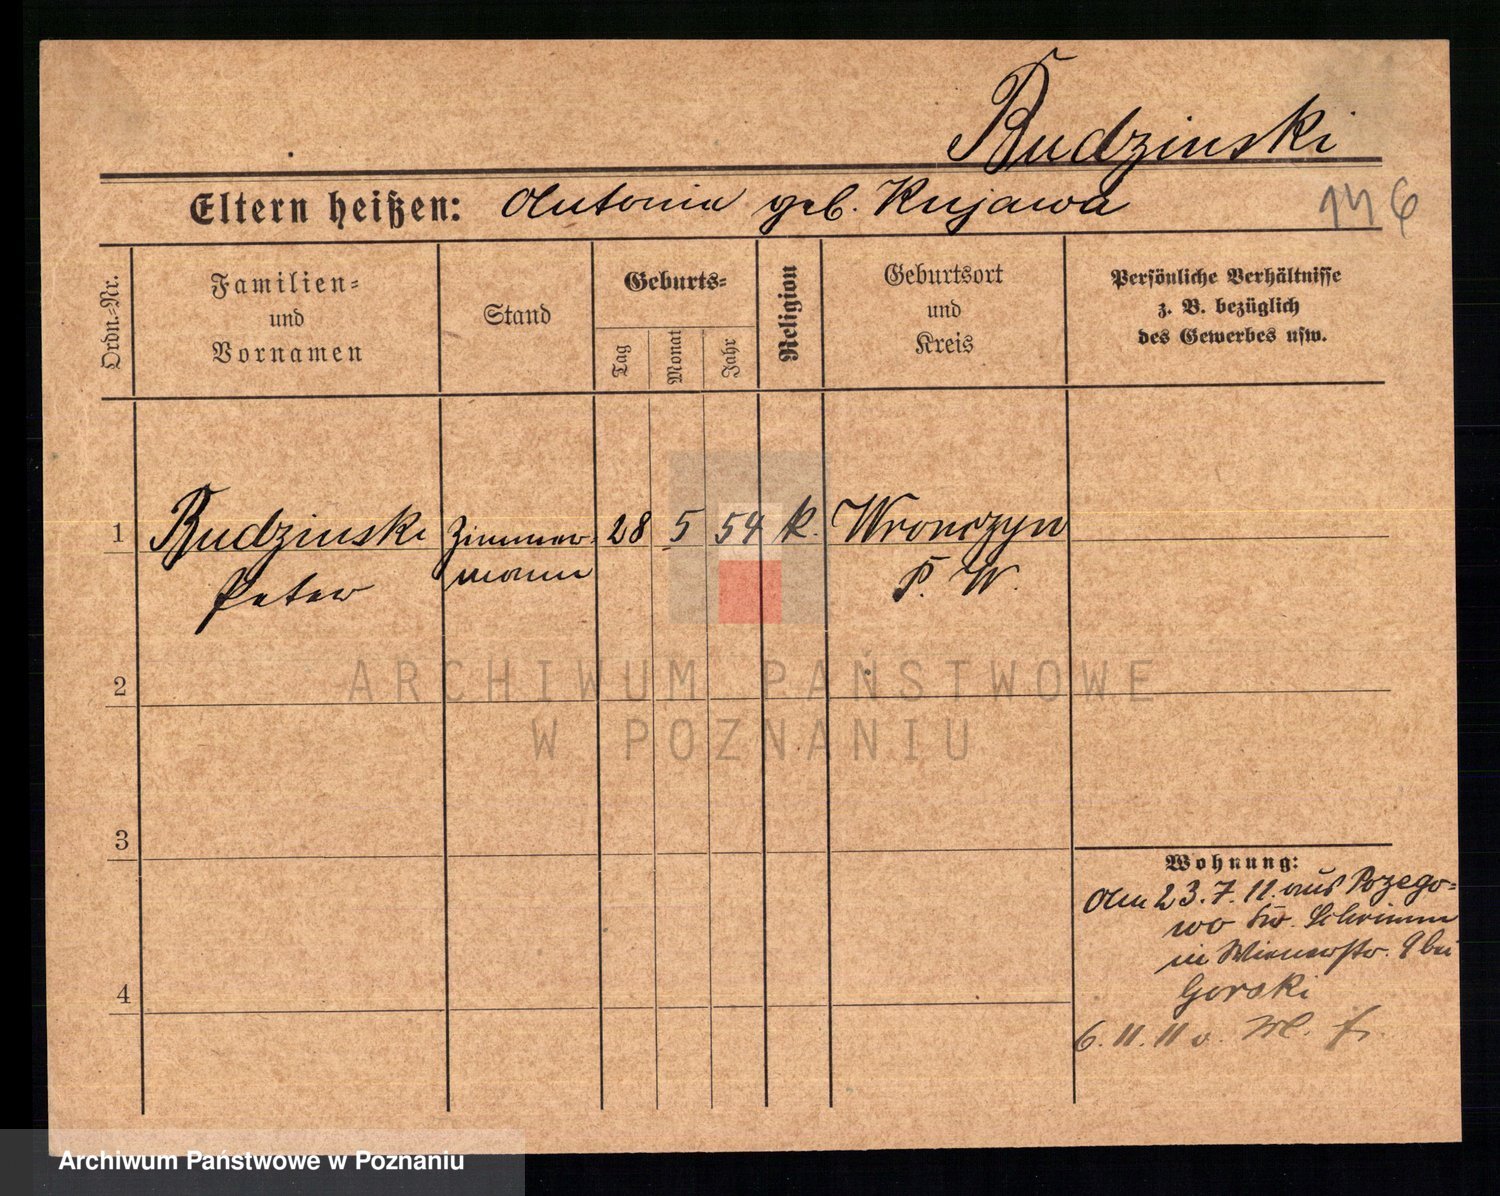 Budzinski
Eltern heißen: Antonia geb. Kujawa
146
Ordn.-Nr.
Familien-
und
Vornamen
Stand
Geburts-
Tag
Monat
Jahr
Religion
Geburtsort
und
Kreis
Persönliche Verhältnisse
z. B. bezüglich
des Gewerbes usw.
1 Budzinski Zimmer- 28 5 54 k. Wronczyn
Peter mann P. W.
2
3
4
Wohnung:
Am 23.7.11. aus Pozego-
wo Kr. Schrimm
in Wienerstr. 9 bei
Gorski
6.11.11 v.
ARCHIWUM PAŃSTWOWE
W POZNANIU
Archiwum Państwowe w Poznaniu